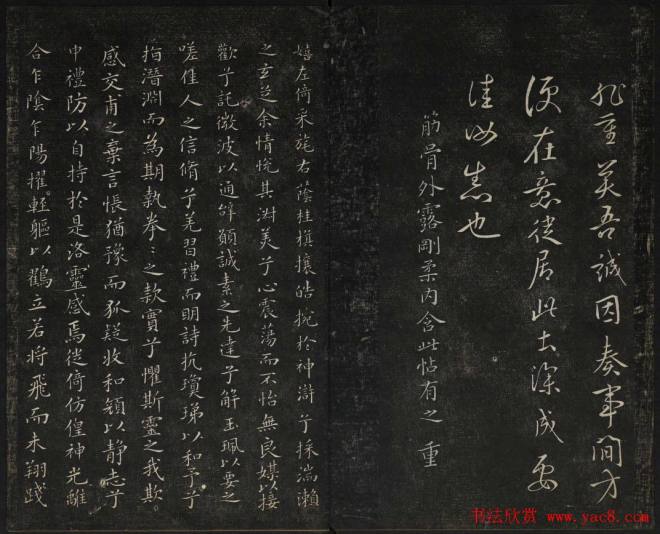 非至 英吾誠因奏事間方
便在意從居此土深成要
佳如意也
筋骨外露剛柔内含此帖有之 重
嬉左倚采旄右蔭桂旗攘皓捥於神滸兮採湍瀨
之玄芝余情悅其淑美兮心震蕩而不怡無良媒以接
歡兮託微波以通辤願誠素之先達兮解玉珮以要之
嗟佳人之信脩兮羌習禮而明詩抗瓊珶以和予兮
指潛淵而為期執拳〻之款實兮懼斯靈之我欺
感交甫之棄言悵猶豫而狐疑收和顏以静志兮
申禮防以自持於是洛靈感焉徙倚仿偟神光離
合乍陰乍陽擢輕軀以鶴立若將飛而未翔踐
书法欣赏 www.yac8.com